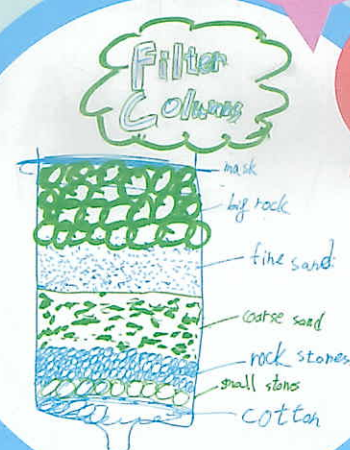 Filter
Columns
mask
big rock
fine sand
coarse sand
rock stones
small stones
cotton